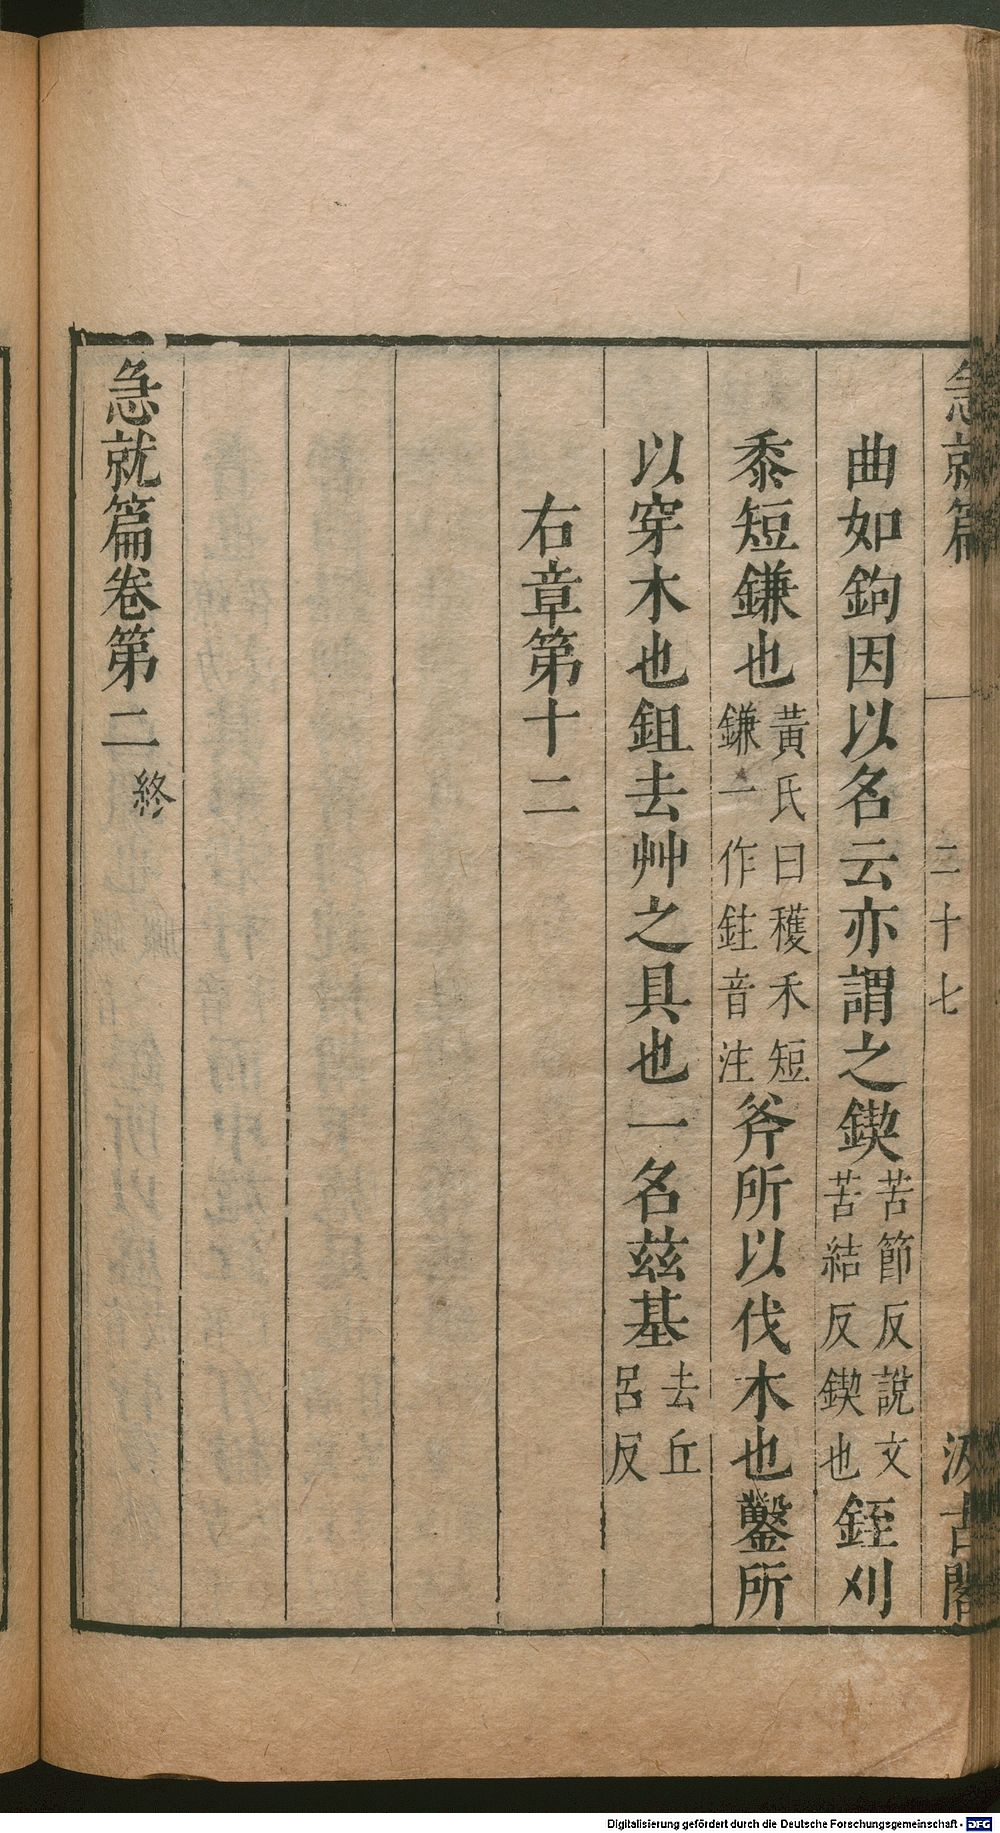 急就篇 二十七 汲古閣
曲如鉤因以名云亦謂之鍥苦節反說文苦結反鍥也銍刈
黍短鎌也黃氏曰穫禾短鎌一作鉒音注斧所以伐木也鑿所
以穿木也鉏去艸之具也一名茲基去丘呂反
右章第十二
急就篇卷第二終
Digitalisierung gefördert durch die Deutsche Forschungsgemeinschaft - DFG